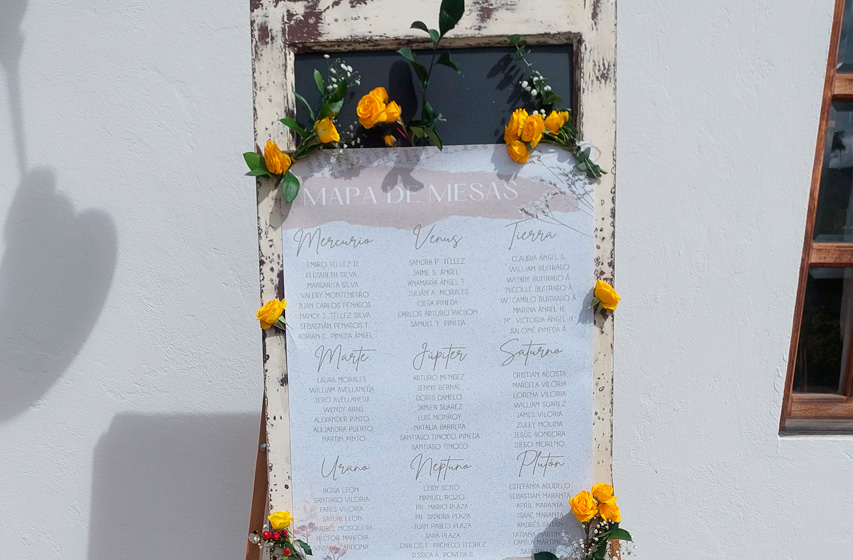 MAPA DE MESAS
Mercurio
EMIRO TÉLLEZ D.
ELIZABETH SILVA
MARGARITA SILVA
VALERY MONTENEGRO
JUAN CARLOS PENAGOS
NANCY J. TÉLLEZ SILVA
SEBASTIÁN PENAGOS T.
ADRIAN C. PINEDA ÁNGEL
Venus
SANDRA P. TÉLLEZ
JAIME S. ÁNGEL
ANAMARÍA ÁNGEL T.
JULIÁN A. MORALES
OLGA PINEDA
CARLOS ARTURO PACHÓN
SAMUEL T. PINEDA
Tierra
CLAUDIA ÁNGEL G.
WILLIAM BUITRAGO
WENDY BUITRAGO Á.
NICOLLE BUITRAGO Á.
W. CAMILO BUITRAGO Á.
MARINA ÁNGEL H.
Mª. VICTORIA ÁNGEL H.
SALOMÉ PINEDA Á.
Marte
LAURA MORALES
WILLIAM AVELLANEDA
JERO AVELLANEDA
WENDY ABAD
ALEXANDER PINTO
ALEJANDRA PUERTO
MARTIN PINTO
Júpiter
ARTURO MÉNDEZ
JENNY BERNAL
DORIS CAMELO
JANIER SUAREZ
LUIS MONROY
NATALIA BARRERA
SANTIAGO TINOCO PINEDA
SANTIAGO TINOCO
Saturno
CRISTIAN ACOSTA
MARCELA VILORIA
LORENA VILORIA
WILLIAM SUAREZ
JAMES VILORIA
ZULEY MOLINA
JESÚS GONGORA
DIEGO MORENO
Urano
ROSA LEON
SANTIAGO VILORIA
FARES VILORIA
SAYURI LEON
MOSQUERA
HECTOR MAHECHA
Neptuno
LEIDY SOTO
MANUEL ROZO
PR. MARIO PLAZA
PR. SANDRA PLAZA
JUAN PABLO PLAZA
SARA PLAZA
CARLOS E. PACHECO FLOREZ
JESSICA A.
Plutón
ESTEFANÍA AGUDELO
SEBASTIAN MARANTA
APRIL MARANTA
ISAAC MARANTA
ANDRÉS GAITAN
TATIANA
CAMILA